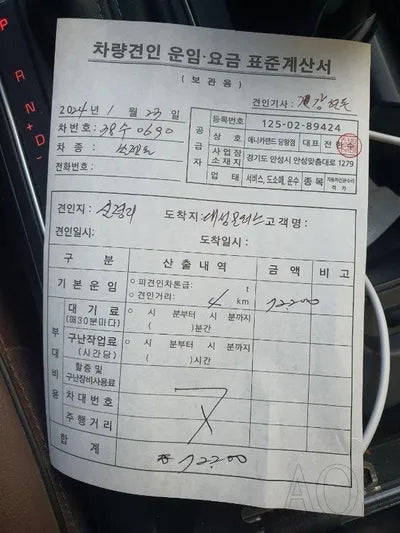 P
R
N
+
D
-
차량견인 운임·요금 표준계산서
( 보 관 용 )
견인기사 :
2024년 1월 23일
차번호: 38수0690
차 종 : 쏘렌토
전화번호:
공급자
등록번호 125-02-89424
상 호 애니카랜드 당왕점 대표 전
사업장소재지 경기도 안성시 안성맞춤대로 1279
업 태 서비스, 도소매, 운수 종목
견인지: 도착지: 고객명 :
견인일시: 도착일시:
구 분 산 출 내 역 금 액 비 고
기본운임 ○ 피견인차톤급: t
○ 견인거리: 4 km 72200
부대비용
대 기 료 (매30분마다) ○ 시 분부터 시 분까지
( )분간
구난작업료 (시간당) ○ 시 분부터 시 분까지
( )시간
할증 및 구난장비사용료
차대번호
주행거리
합 계 72200
AO